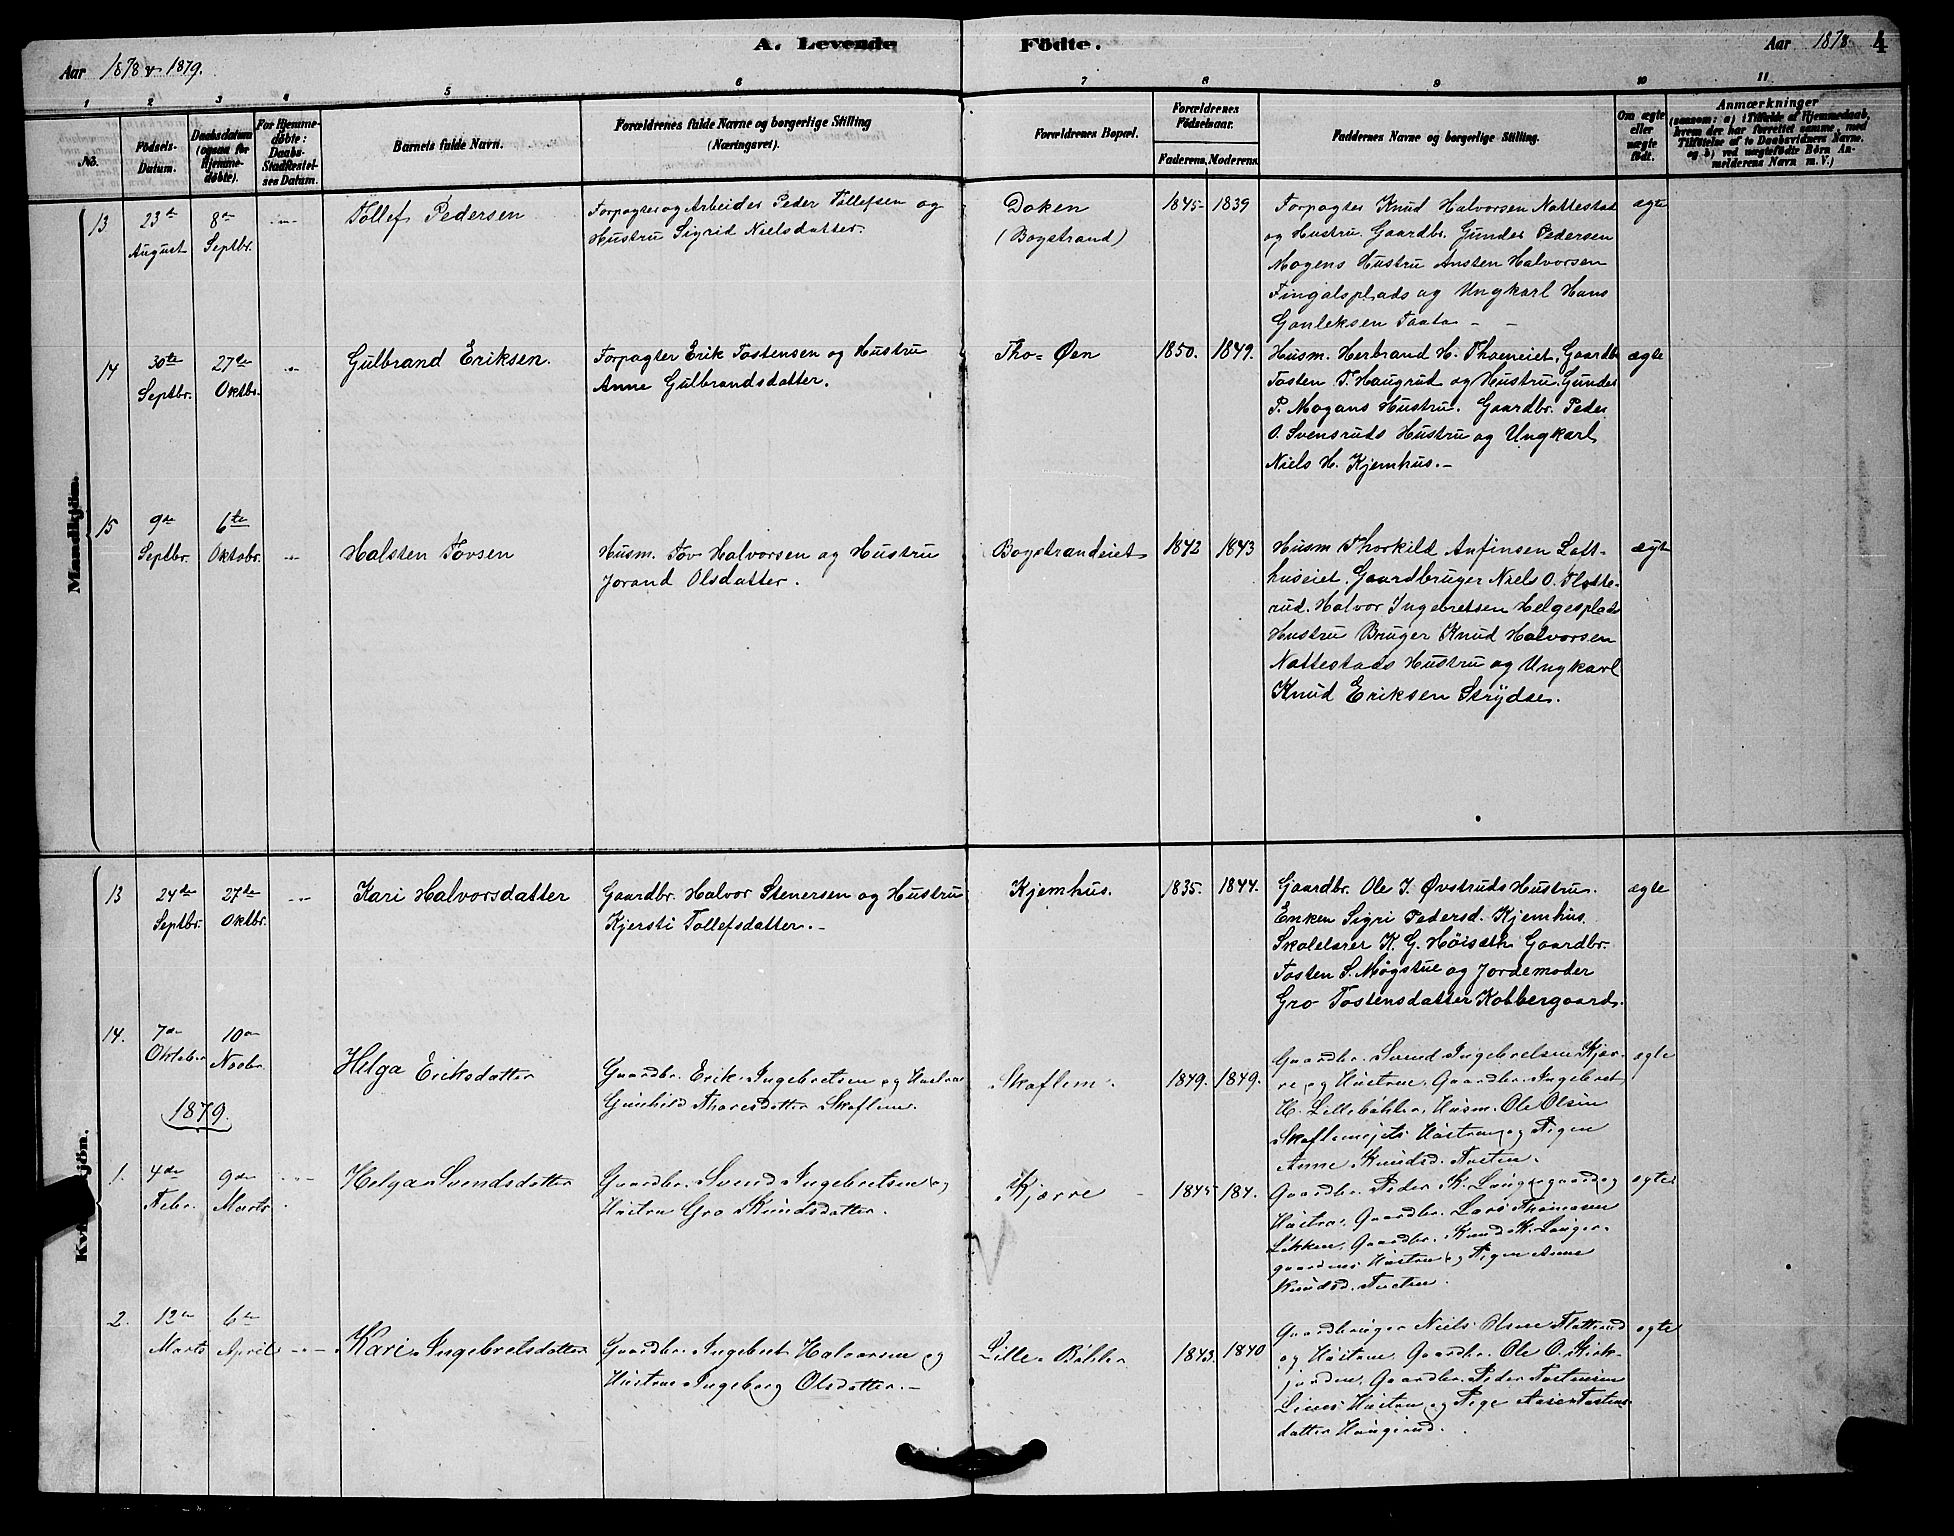 A. Levende Födte.
Aar 1878 & 1879.
Aar 1878.
4
1 2 3 4 5 6 7 8 9 10 11
No.
Födsels-
Datum.
Daabsdatum
(ogsaa for
Hjemme-
döbte).
For Hjemme-
döbte:
Daabs-
Stadfæstel-
ses Datum.
Barnets fulde Navn.
Forældrenes fulde Navne og borgerlige Stilling
(Næringsvei).
Forældrenes Bopæl.
Forældrenes
Födselsaar.
Faderens. Moderens.
Faddernes Navne og borgerlige Stilling.
Om ægte
eller
uægte
født.
Anmærkninger
(saasom: a) i Tilfælde af Hjemmedaab,
hvem der har forrettet samme, med
Tilföielse af to Daabsvidners Navne.
og b) ved uægtefödte Börn An-
melderens Navn m. V.)
Mandkjön.
13
23de
August
8de
Septbr.
Tollef Pedersen
Forpagter og Arbeider Peder Tollefsen og
Hustru Sigrid Nielsdatter.
Doken
(Bogstrand)
1845 1839
Forpagter Knud Halvorsen Nattestad
og Hustru. Gaardbr. Gunder Pedersen
Mogens Hustru Ansten Halvorsen
Fingalsplads og Ungkarl Hans
Gonleksen Taata
ægte
14
30te
Septbr.
27de
Oktbr.
Gulbrand Eriksen.
Forpagter Erik Tostensen og Hustru
Anne Gulbrandsdatter.
Tho-Øen
1850. 1849.
Husm. Herbrand H. Thoeneiet, Gaardb.
Tosten T. Haugrud og Hustru, Gunder
P. Mogans Hustru. Gaardbr. Peder
O. Svensruds Hustru og Ungkarl
Niels H. Kjemhus.
ægte
15
9de
Septbr.
6te
Oktobr.
Halsten Tovsen
Husm. Tov Halvorsen og Hustru
Jorand Olsdatter.
Bogstrandeiet
1842 1843
Husm Thorkild Anfinsen Loft-
huseiet, Gaardbruger Niels O. Flotte-
rud. Halvor Ingebretsen Helgesplads
Hustru Bruger Knud Halvorsen
Nattestads Hustru og Ungkarl
Knud Eriksen Strydse.
ægt
13
24de
Septbr.
27de
Oktbr.
Kari Halvorsdatter
Gaardbr. Halvor Stenersen og Hustru
Kjersti Tollefsdatter.
Kjemhus.
1835. 1844.
Gaardbr. Ole J. Øvstruds Hustru.
Enken Sigri Pedersd. Kjemhus.
Skolelærer K. G. Höisæth Gaardbr.
Tosten S. Møgstue og Jordemoder
Gro Tostensdatter Kobbergaard.
ægte
14.
7de
Oktober
10de
Novbr.
Helga Eriksdatter
Gaardbr. Erik Ingebretsen og Hustru
Gunhild Thoresdatter Skaflem.
Skaflem.
1849. 1849.
Gaardbr. Svend Ingebretsen Kjær-
re og Hustru, Gaardbr. Ingebret
H. Lillebøhler, Husm. Ole Olsen
Skaflemejets Hustru og Pigen
Anne Knudsd.
ægte
1879.
1.
4de
Febr.
9de
Marts
Helga Svendsdatter
Gaardbr. Svend Ingebretsen og
Hustru Gro Knudsdatter.
Kjærre
1845 184.
Gaardbr. Peder K. Langegaard og
Hustru, Gaardbr. Lars Thomasen
Løkken, Gaardbr. Knud K. Langer-
gaardens Hustru og Pigen Anne
Knudsd.
ægte
2.
12te
Marts
6te
April
Kari Ingebretsdatter
Gaardbr. Ingebret Halvorsen og
Hustru Ingeborg Olsdatter.
Lille-Bøhler
1843. 1840
Gaardbruger Niels Olsen Flatterud
og Hustru, Gaardbr. Ole O. Kirk-
jorden, Gaardbr. Peder Tostensen
Liens Hustru og Pige Aase Tostens-
datter Haugerud.
ægte